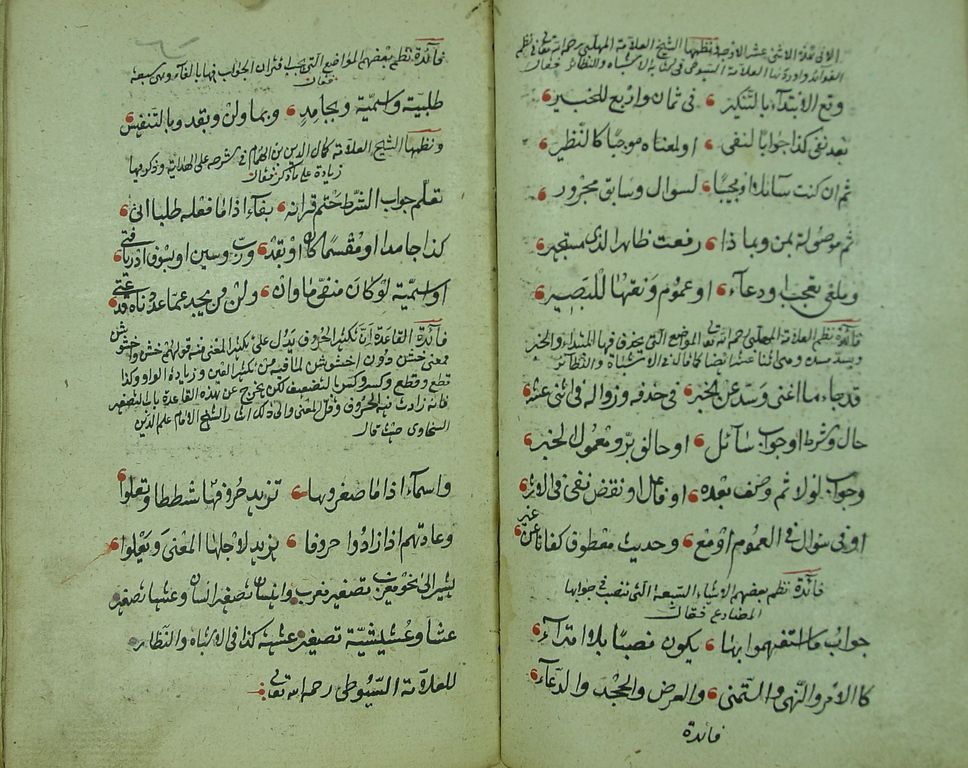 الآتى نظمها الشيخ العلامة المهلبى رحمه الله تعالى فى نظم
الفوائد واوردها العلامة السيوطى فى كتابه الاشباه والنظائر فقال
وقع الابتداء بالتنكير فى ثمان واربع للخبير
بعد نفى كذا جوابا لنفى او لمعناه موجبا كالنظير
ثم ان كنت سائلا او مجيبا لسوال وسابق مجرور
ثم موصولة بمن وبما ذا رفعت ظاهرا لذى مستجير
وبمعنى تعجب ودعاء او عموم ونعتها للبصير
فائدة نظم العلامة المهلبى رحمه الله تعالى المواضع التى يحذف فيها المبتداء والخبر
ويسد مسده وهى اثنا عشر ايضا كما قال فى الاشباه والنظائر
قد جاء ما اغنى وسد عن الخبر فى حذفه وزواله فى اثنى عشر
حال وشرط او جواب سائل او حالف بر ومعمول الخبر
وجواب لولا ثم وصف بعده او فاعل او نقض نفى فى الاثر
او فى سوال فى العموم او مع وحديث معطوف كفانا عن غبر
فائدة نظم بعضهم الاشياء السبعة التى تنصب فى جوابها
المضارع فقال
جواب ما استفهموا بها يكون نصبا بلا امتراء
كالامر والنهى والتمنى والعرض والجحد والدعاء
فائدة
فائدة نظم بعضهم المواضع التى يجب اقتران الجواب فيها بالفاء وهى سبعة
فقال
طلبية واسمية وبجامد وبما ولن وبقد وبالتنفيس
ونظمها الشيخ العلامة كمال الدين بن الهمام فى شرحه على الهداية وذكر فيها
زيادة على ما ذكر فقال
تعلم جواب الشرط حتم قرانه بفاء اذا ما فعله طلبا اتى
كذا جامدا او مقسما كان او بقد ورب وسين او بسوف ادر يا فتى
او اسمية او كان منفى ما وان ولن من يحد عما عددناه قد عتى
فائدة القاعدة ان تكثير الحروف يدل على تكثير المعنى فمنه قولهم خشن واخشوشن
بمعنى خشن دون اخشوشن لما فيه من تكثير العين وزيادة الواو وكذا
قطع وقطع وكسر وكسر بالتضعيف لكن يخرج عن هذه القاعدة باب التصغير
فانه زادت فيه الحروف وقل المعنى والى ذلك اشار الشيخ الامام علم الدين
السخاوى حيث قال
واسماء اذا ما صغروها تزيد حروفها شططا وتعلوا
وعادتهم اذا زادوا حروفا يزيد لاجلها المعنى ويعلوا
يشير الى نحو مغيربان تصغير مغرب وانيسيان تصغير انسان وعشيا تصغير
عشا وعشيشية تصغير عشية كذا فى الاشباه والنظائر
للعلامة السيوطى رحمه الله تعالى